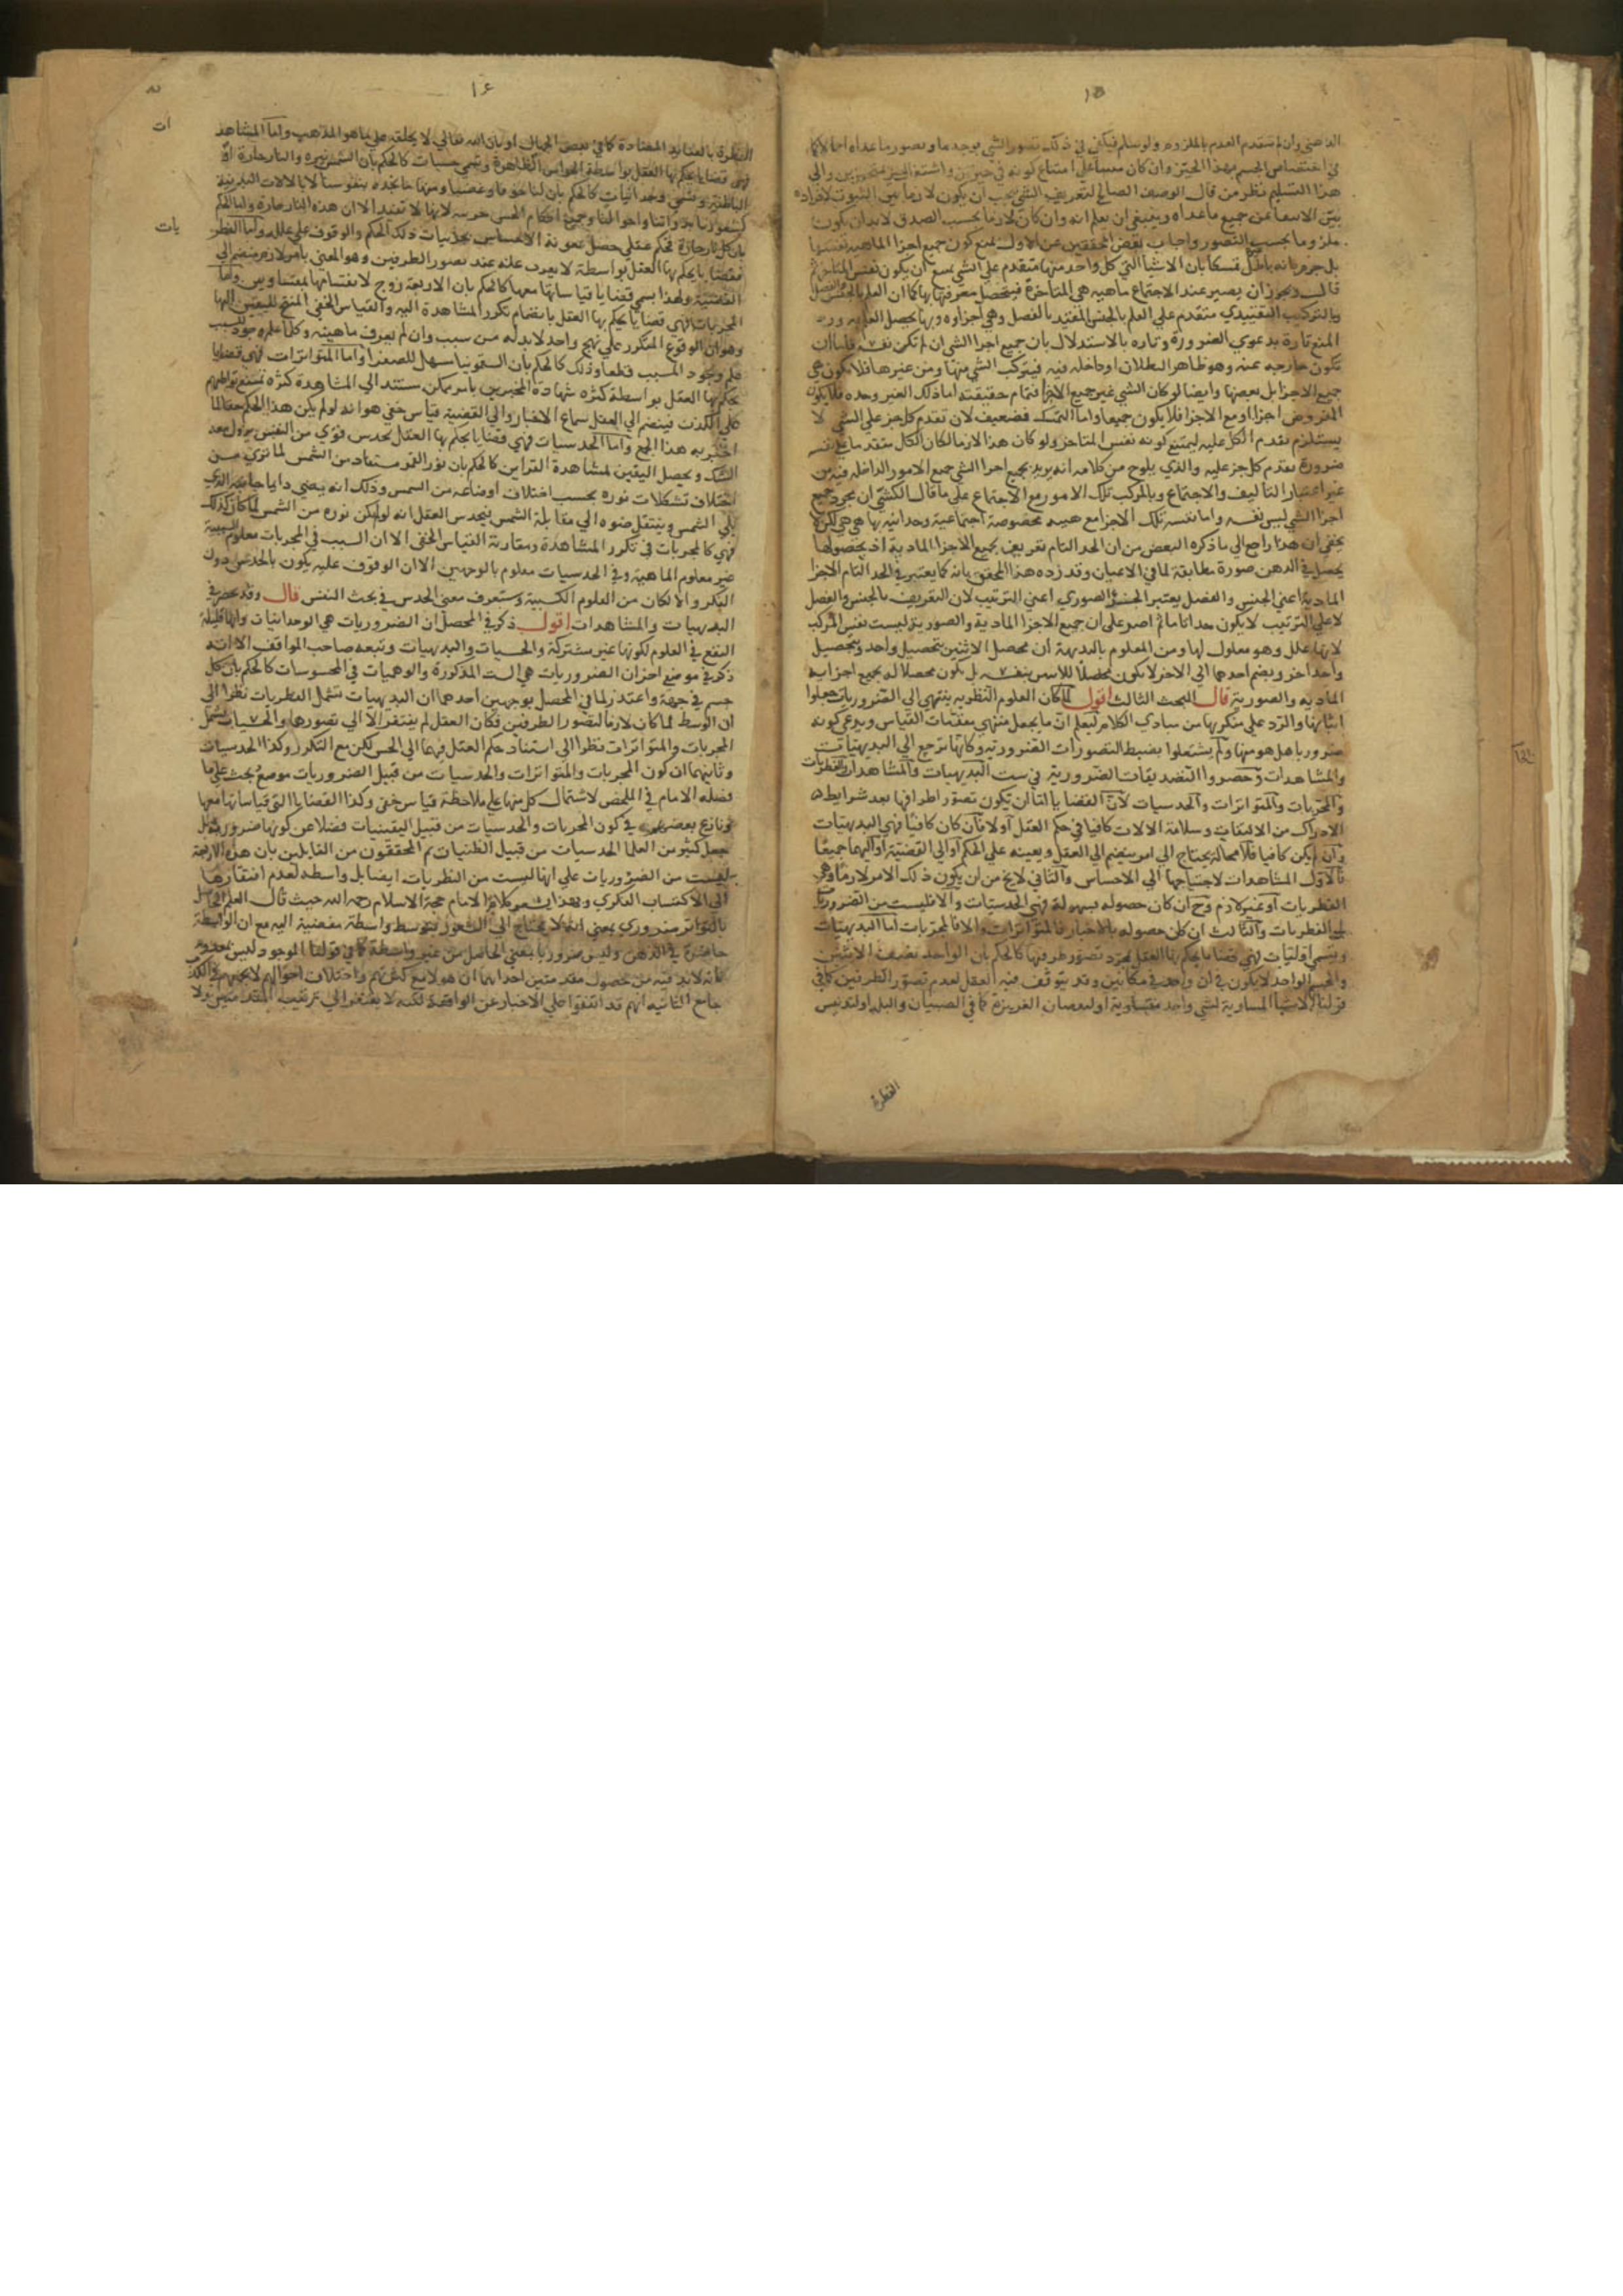 ١٥
الذهني وان لم تتقدم العدم بالملزوم ولو سلم فيكفي في ذلك تصور الشي بوجه ما وتصور ما عداه اجمالا كما
في اختصاص الجسم بهذا الحيز وان كان مبنيا على امتناع كونه في حيزين واشتغال حيز بمتحيزين والي
هذا التسليم نظر من قال الوصف الصالح لتعريف الشي يجب ان يكون لازما بين الثبوت لافراده
بين الانتفا عن جميع ما عداه وينبغي ان يعلم انه وان كان لازما بحسب الصدق لا بد ان يكون
ملزوما بحسب التصور واجاب بعض المحققين عن الاول بمنع كون جميع اجزا الماهية نفسها
بل جزم بانه باطل تمسكا بان الاشيا التي كل واحد منها متقدم على الشي يمتنع ان يكون نفس المتاخر ثم
قال ويجوز ان يصير عند الاجتماع ماهية هي المتاخرة فيتحصل معرفتها بها كما ان العلم بالجنس والفصل
وبالتركيب التقييدي متقدم علي العلم بالجنس المقيد بالفصل وهي اجزاوه وبها يحصل العلم به ورد
المنع تارة بدعوي الضرورة وتارة بالاستدلال بان جميع اجزا الشي ان لم تكن نفسه فاما ان
تكون خارجه عنه وهو ظاهر البطلان او داخله فيه فيتركب الشي منها ومن غيرها فلا تكون هي
جميع الاجزا بل بعضها وايضا لو كان الشي غير جميع الاجزا فتمام حقيقته اما ذلك الغير وحده فلا يكون
المفروض اجزا او مع الاجزا فلا يكون جميعا واما التمسك فضعيف لان تقدم كل جز على الشي لا
يستلزم تقدم الكل عليه ليمتنع كونه نفس المتاخر ولو كان هذا لازما لكان الكل متقدما على نفسه
ضرورة تقدم كل جز عليه والذي يلوح من كلامه انه يريد بجميع اجزا الشي جميع الامور الداخله فيه من
غير اعتبار التاليف والاجتماع وبالمركب تلك الامور مع الاجتماع على ما قال الكشي ان مجرد جميع
اجزا الشي ليس نفسه وانما نفسه تلك الاجزا مع هيية مخصوصة اجتماعية وحدانيه بها هي هي لكن لا
يخفي ان هذا راجع الي ما ذكره البعض من ان الحد التام تعريف بجميع الاجزا المادية اذ بحصولها
يحصل في الذهن صورة مطابقة لما في الاعيان وقد رده هذا المحقق بانه كما يعتبر في الحد التام الاجزا
المادية اعني الجنس والفصل يعتبر الجزء الصوري اعني الترتيب لان التعريف بالجنس والفصل
لا على الترتيب لا يكون حدا تاما ثم اصر على ان جميع الاجزا المادية والصورية ليست نفس المركب
لانها علل وهو معلول لها ومن المعلوم بالبديهة ان محصل الاثنين بتحصيل واحد وبتحصيل
واحد اخر وبضم احدهما الي الاخر لا يكون محصلا للاثنين بنفسه بل يكون محصلا له بجميع اجزايه
الماديه والصورية قال البحث الثالث اقول لما كان العلوم النظريه ينتهي الي الضروريات جعلوا
اثباتها والرد على منكريها من مبادي الكلام ليعلم ان ما يجعل منتهي مقدمات القياس ويدعي كونه
ضروريا هل هو منها ولم يشتغلوا بضبط التصورات الضرورية وكانها ترجع الي البديهيات
والمشاهدات وحصروا التصديقات الضرورية في ست البديهيات والمشاهدات والفطريات
والمجربات والمتواترات والحدسيات لان القضايا اما ان يكون تصور اطرافها بعد شرايط
الادراك من الالتفات وسلامة الالات كافيا في حكم العقل او لا فان كان كافيا فهي البديهيات
وان لم يكن كافيا فلا محاله يحتاج الي امر ينضم الي العقل ويعينه على الحكم او الي القضية او اليهما جميعا
فالاول المشاهدات لاحتياجها الي الاحساس والثاني لا يخ من ان يكون ذلك الامر لازما وهي
الفطريات او غير لازم وح ان كان حصوله بسهولة فهي الحدسيات والا فليست من الضروريات
بل النظريات والثالث ان كان حصوله بالاخبار فالمتواترات والا فالمجربات اما البديهيات
وتسمي اوليات فهي قضايا يحكم بها العقل بمجرد تصور طرفيها كالحكم بان الواحد نصف الاثنين
والجسم الواحد لا يكون في آن واحد في مكانين وقد يتوقف فيه العقل لعدم تصور الطرفين كما في
قولنا الاشيا المساوية لشي واحد متساوية او لنقصان الغريزة كما في الصبيان والبله او لتدنيس
الفطرة
١٤
الفطرة بالعقايد المضادة كما في بعض الجهال او بان الله تعالي لا يخلقه علي ما هو المذهب واما المشاهدات
فهي قضايا يحكم بها العقل بواسطة الحواس الظاهرة وتسمي حسيات كالحكم بان الشمس نيرة والنار حارة او
الباطنة وتسمي وجدانيات كالحكم بان لنا خوفا وغضبا ومنها ما نجده بنفوسنا لا بالالات البدنية
كشعورنا بذواتنا واحوالنا وجميع احكام الحس جزييه لانها لا تفيد الا ان هذه النار حارة واما الحكم
بان كل نار حارة فحكم عقلي حصل بمعونة الاحساس بجزييات ذلك الحكم والوقوف علي علله واما الفطريات
فقضايا يحكم بها العقل بواسطة لا يعزب عنه عند تصور الطرفين وهو المعني بامر لازم منضم الي
القضية ولهذا يسمي قضايا قياساتها معها كالحكم بان الاربعة زوج لانقسامها بمتساويين واما
المجربات فهي قضايا يحكم بها العقل بانضمام تكرر المشاهدة اليه والقياس الخفي المنتج لليقين اليها
وهو ان الوقوع المتكرر علي نهج واحد لا بد له من سبب وان لم يعرف ماهيته وكلما علم وجود السبب
علم وجود المسبب قطعا وذلك كالحكم بان السقمونيا مسهل للصفرا واما المتواترات فهي قضايا
يحكم بها العقل بواسطة كثرة شهادة المخبرين بامر ممكن مستند الي المشاهدة كثرة يمتنع تواطؤهم
على الكذب فينضم الي العقل سماع الاخبار والي القضية قياس خفي هو انه لو لم يكن هذا الحكم حقا لما
اخبر به هذا الجمع واما الحدسيات فهي قضايا يحكم بها العقل بحدس قوي من النفس يزول معه
الشك ويحصل اليقين لمشاهدة القراين كالحكم بان نور القمر مستفاد من الشمس لما نري من
اختلاف تشكلات نوره بحسب اختلاف اوضاعه من الشمس وذلك انه يضي دايما جانبه الذي
يلي الشمس وينتقل ضوه الي مقابلة الشمس فيحدس العقل انه لو لم يكن نوره من الشمس لما كان كذلك
فهي كالمجربات في تكرر المشاهدة ومقارنة القياس الخفي الا ان السبب في المجربات معلوم السببية
غير معلوم الماهية وفي الحدسيات معلوم بالوجهين الا ان الوقوف عليه يكون بالحدس دون
الفكر والا لكان من العلوم الكسبية وستعرف معني الحدس في بحث النفس قال وقد تحصر في
البديهيات والمشاهدات اقول ذكر في المحصل ان الضروريات هي الوجدانيات وانها قليلة
النفع في العلوم لكونها غير مشتركة والحسيات والبديهيات وتبعه صاحب المواقف الا انه
ذكر في موضع اخر ان الضروريات هي الست المذكورة والوهميات في المحسوسات كالحكم بان كل
جسم في جهة واعتذر لما في المحصل بوجهين احدهما ان البديهيات تشمل الفطريات نظرا الي
ان الوسط لما كان لازما لتصور الطرفين فكان العقل لم يفتقر الا الي تصورهما والحسيات تشمل
المجربات والمتواترات نظرا الي استناد حكم العقل فيهما الي الحس لكن مع التكرر وكذا الحدسيات
وثانيهما ان كون المجربات والمتواترات والحدسيات من قبيل الضروريات موضع بحث على ما
فصله الامام في الملخص لاشتمال كل منها على ملاحظة قياس خفي وكذا القضايا التي قياساتها معها
ونازع بعضهم في كون المجربات والحدسيات من قبيل اليقينيات فضلا عن كونها ضرورية بل
جعل كثير من العلما الحدسيات من قبيل الظنيات ثم المحققون من القايلين بان هذه الاربعة
ليست من الضروريات علي انها ليست من النظريات ايضا بل واسطه لعدم افتقارها
الي الاكتساب الفكري وبهذا يشعر كلام الامام حجة الاسلام رحمه الله حيث قال العلم الحاصل
بالتواتر ضروري بمعني انه لا يحتاج الي الشعور بتوسط واسطة مفضية اليه مع ان الواسطة
حاضرة في الذهن وليس ضروريا بمعني الحاصل من غير واسطة كما في قولنا الموجود ليس بمعدوم
فانه لا بد فيه من حصول مقدمتين احداهما ان هولا مع كثرتهم واختلاف احوالهم لا يجمعهم على الكذب
جامع الثانيه انهم قد اتفقوا على الاخبار عن الواقعة لكنه لا يفتقر الي ترتيب المقدمتين ولا